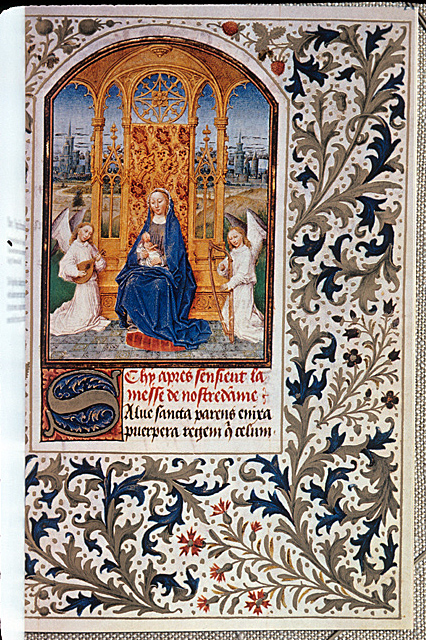 Chy apres sensieut la
messe de nostre dame :
Salue sancta parens enixa
puerpera regem q̄ celum.